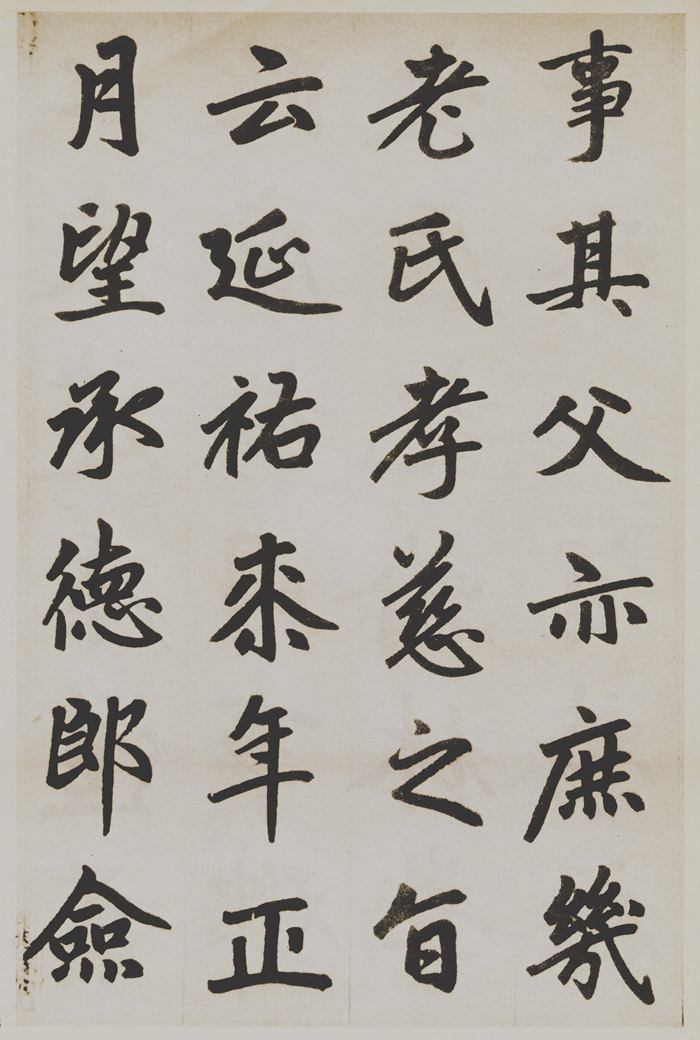 事其父亦庶幾
老氏孝慈之旨
云延祐来年正
月望承德郎僉